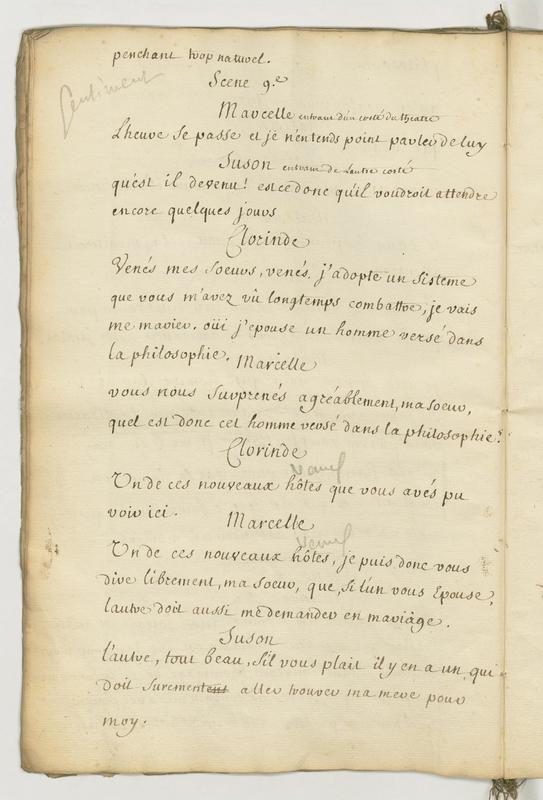 penchant trop naturel.
Sentiment
Scene 9.e
Marcelle entrant d'un costé du theatre
L'heure se passe et je n'entends point parler de luy
Suson entrant de l'autre costé
qu'est il devenu! est ce donc qu'il voudroit attendre
encore quelques jours
Clorinde
Venés mes soeurs, venés, j'adopte un sisteme
que vous m'avez vû longtemps combattre, je vais
me marier. oüi j'epouse un homme versé dans
la philosophie.
Marcelle
vous nous surprenés agréablement, ma soeur,
quel est donc cet homme versé dans la philosophie?
Clorinde
Un de ces nouveaux hôtes que vous avés pu
voir ici.
Marcelle
Un de ces nouveaux hôtes, je puis donc vous
dire librement, ma soeur, que, si l'un vous Epouse,
l'autre doit aussi me demander en mariage.
Suson
l'autre, tout beau, s'il vous plait il y en a un qui
doit surement aller trouver ma mere pour
moy.